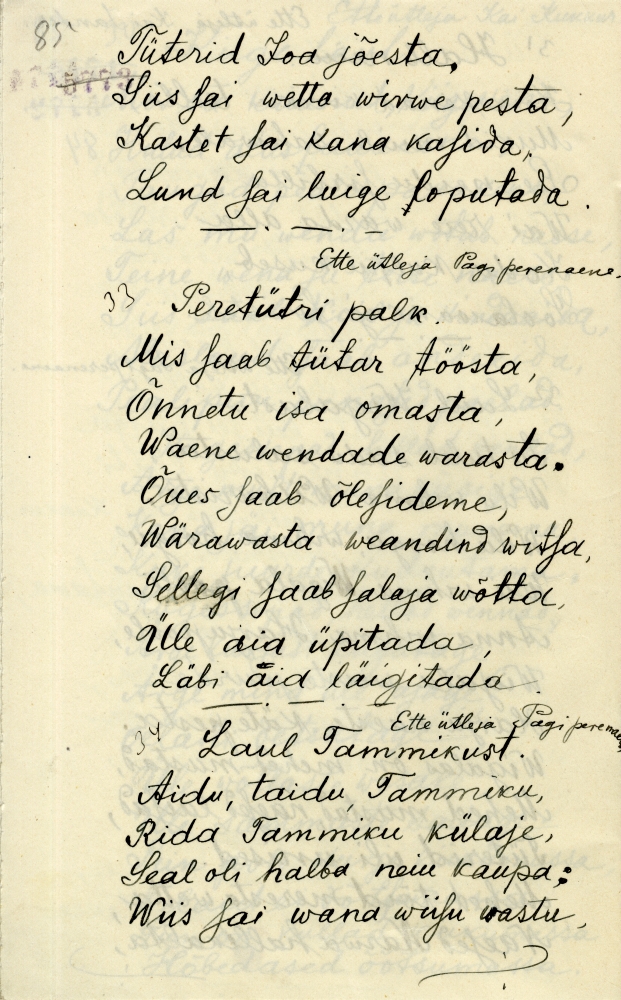 85
Tüterid Joa jõesta,
Siis sai wetta wirwe pesta,
Kastet sai kana kasida,
Lund sai luige loputada.
Ette ütleja Pagi perenaene.
33 Peretütri palk.
Mis saab tütar töösta,
Õnnetu isa omasta,
Waene wendade warasta.
Õues saab õlesideme,
Wärawasta weandind witsa,
Sellegi saab salaja wõtta,
Üle aia üpitada,
Läbi aid läigitada.
Ette ütleja Pagi perenaene
34 Laul Tammikust.
Aidu, taidu, Tammiku,
Rida Tammiku külaje,
Seal oli halba neiu kaupa;
Wiis sai wana wiisu wastu,